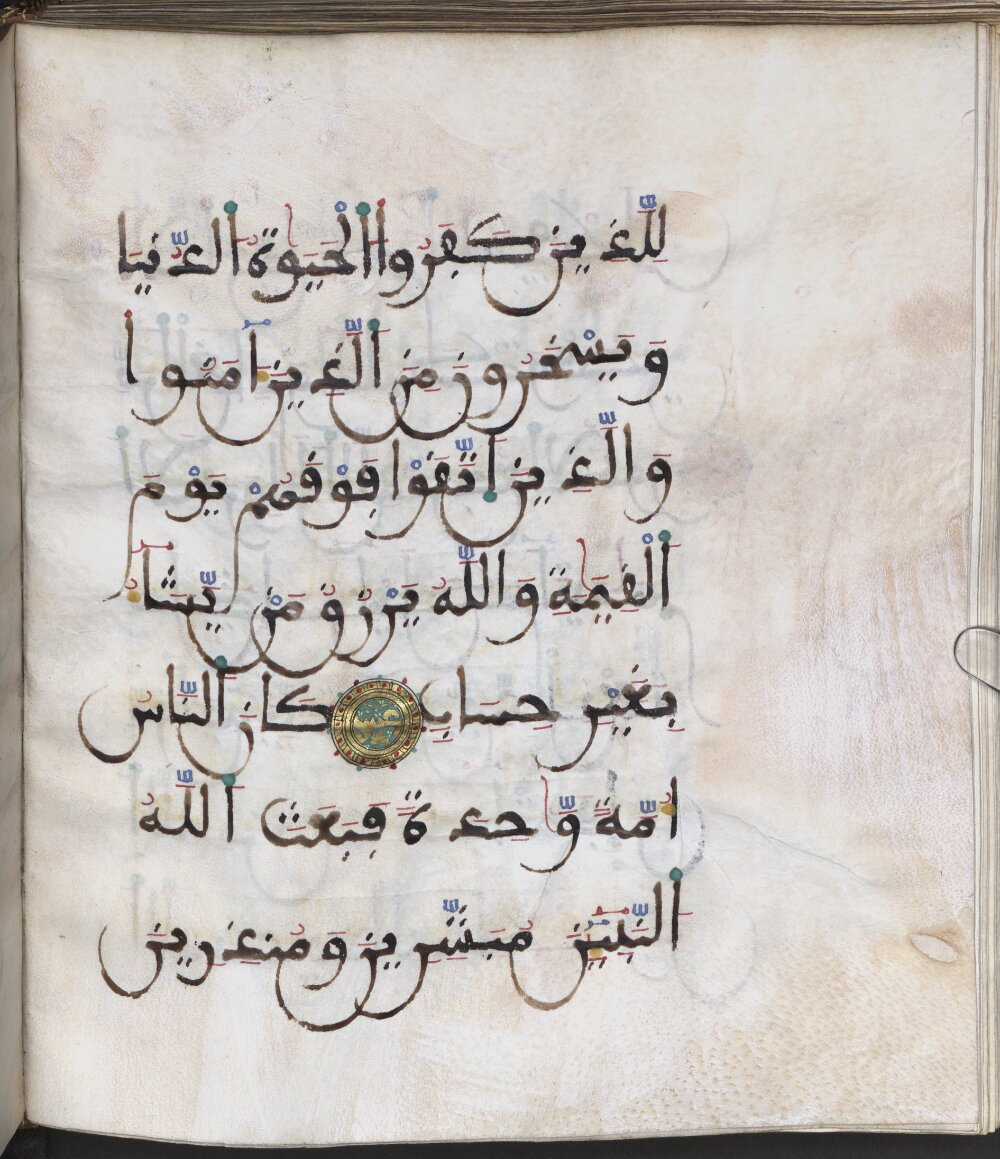 لِلَّذِينَ كَفَرُوا اْلْحَيَوٰةُ اُلدُّنْيَا
وَيَسْخَرُونَ مِنَ اَلَّذِينَ ءَامَنُواْ
وَالَّذِينَ اَتَّقَوْا فَوْقَهُمْ يَوْمَ
اَلْقِيَٰمَةِ وَاللَّهُ يَرْزُقُ مَنْ يَّشَآءُ
بِغَيْرِ حِسَابٍ كَانَ اَلنَّاسُ
أُمَّةً وَّٰحِدَةً فَبَعَثَ اَللَّهُ
اُلنَّبِيِّـِٕينَ مُبَشِّرِينَ وَمُنذِرِينَ